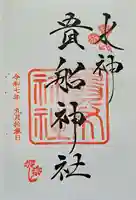 水神
貴船神社
令和七年 九月拾壱日